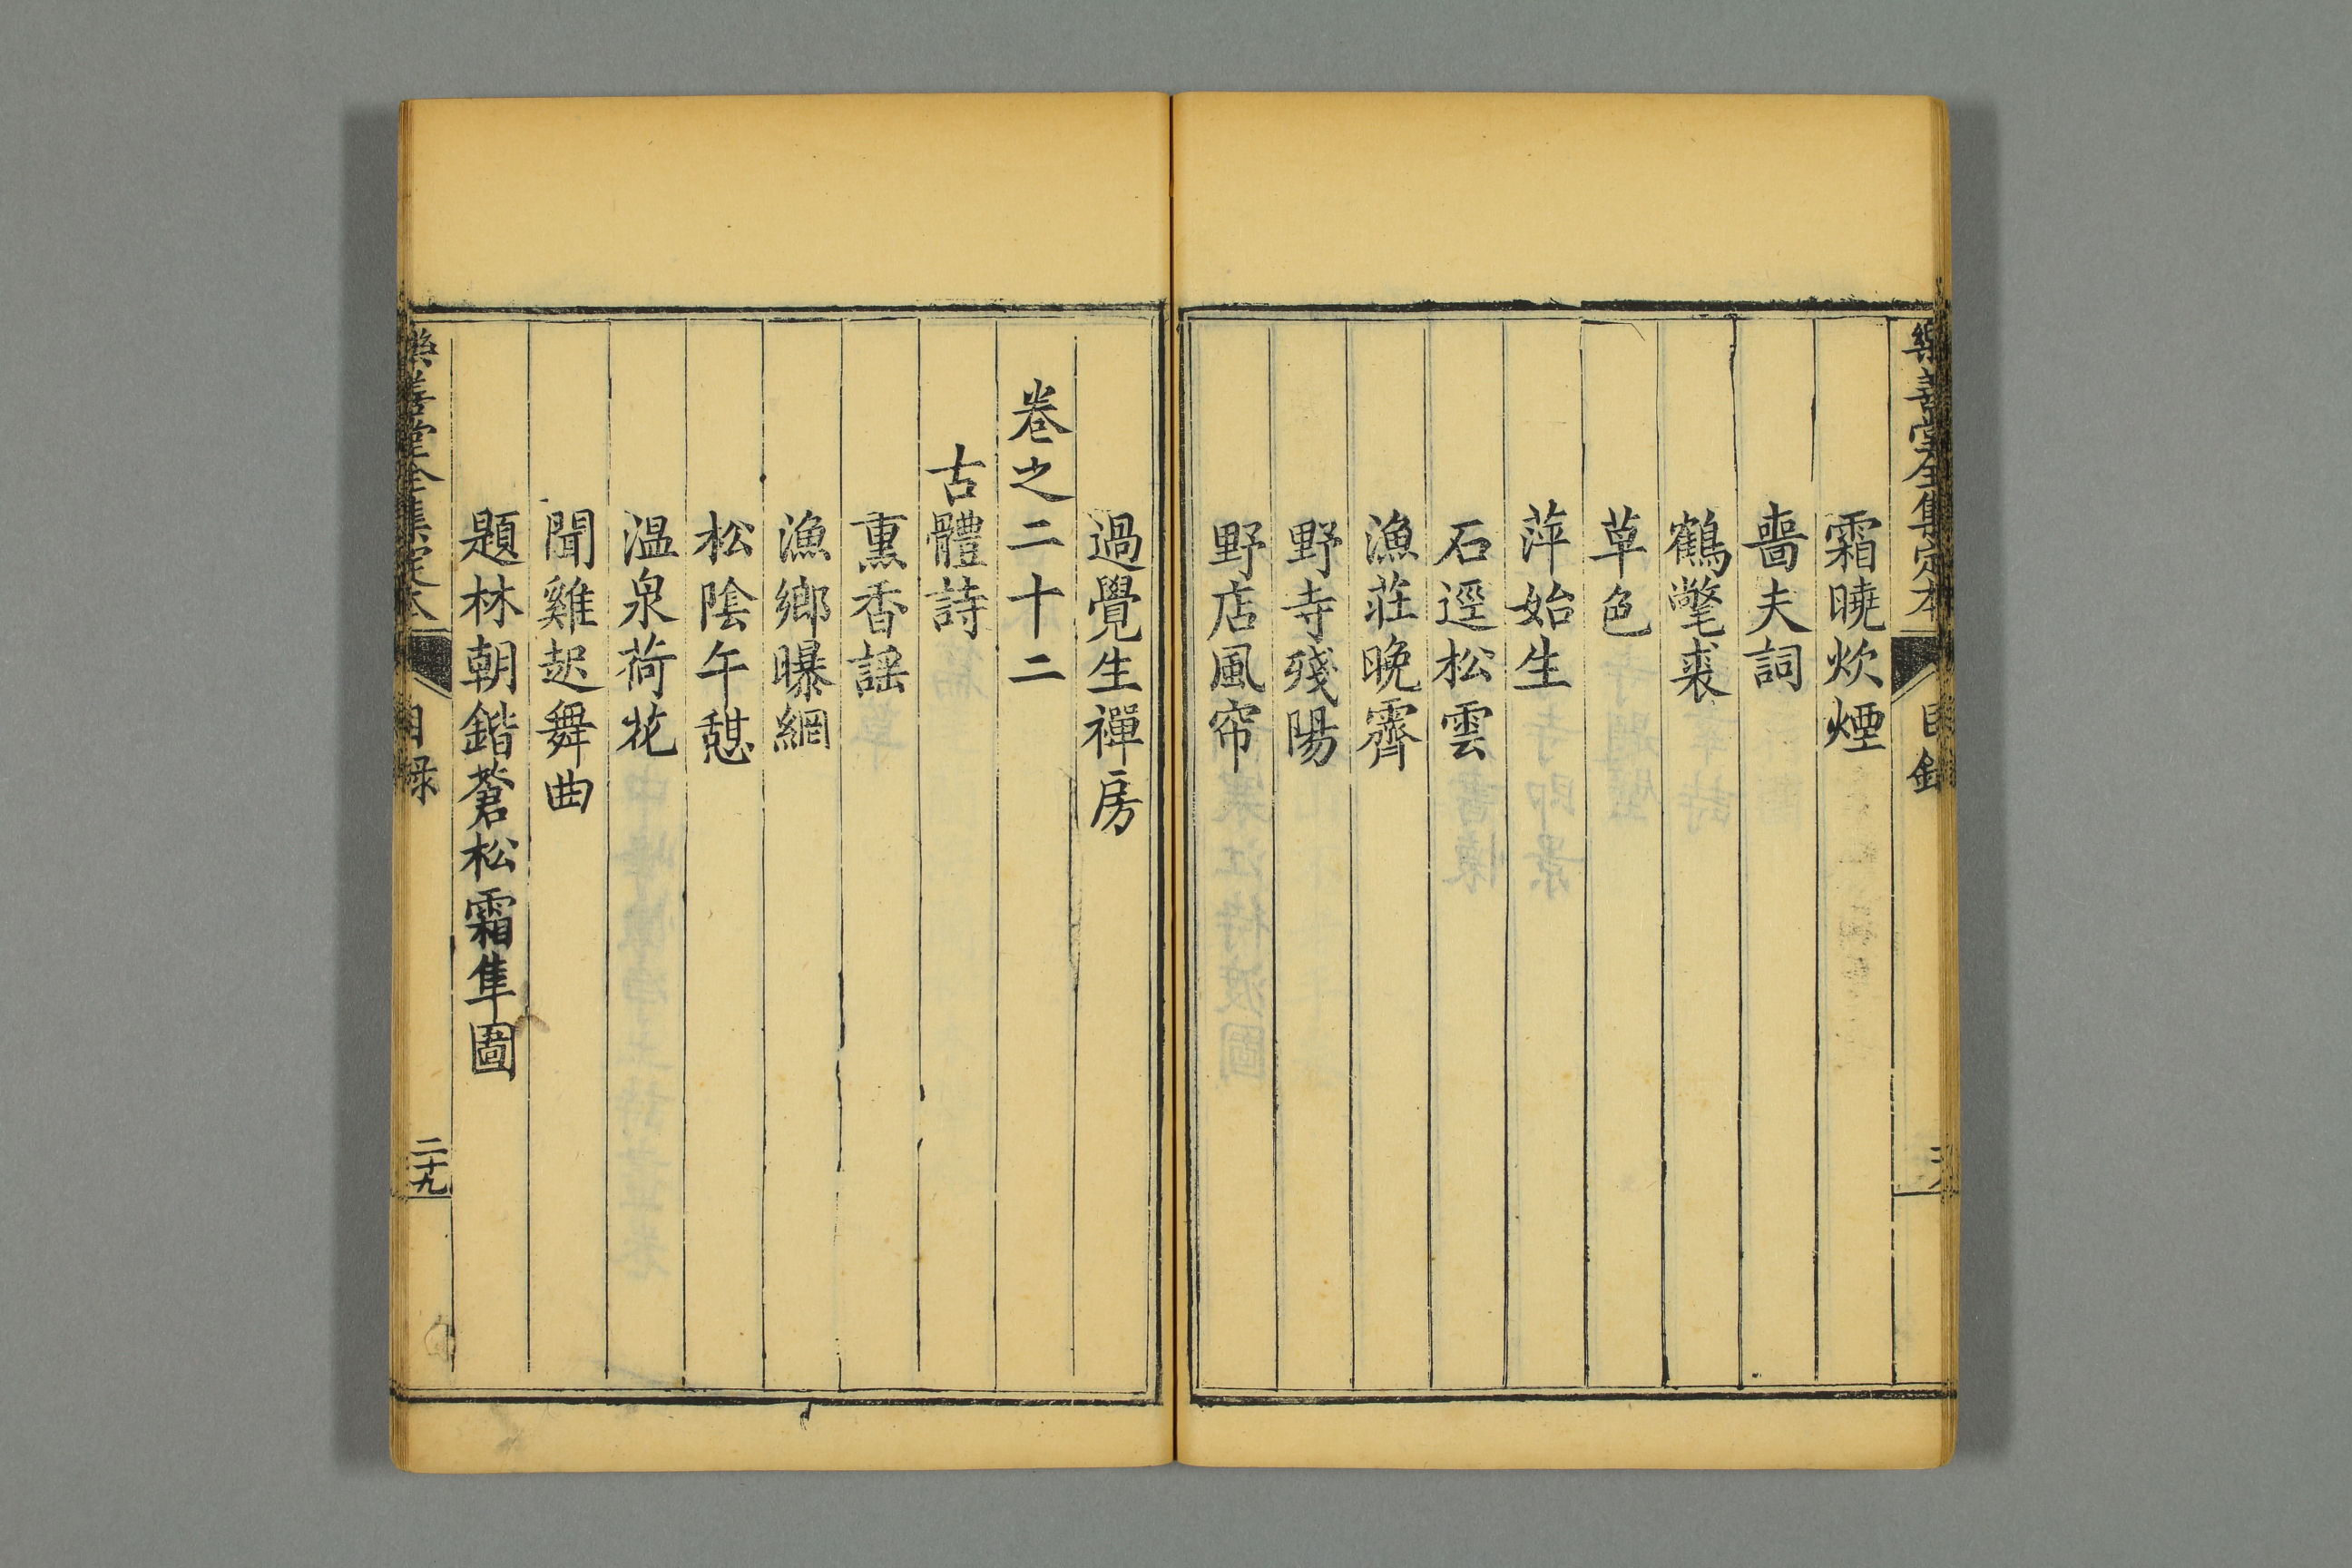 樂善堂全集定本
目錄
霜曉炊煙
嗇夫詞
鶴氅裘
草色
萍始生
石逕松雲
漁莊晚霽
野寺殘陽
野店風帘
過覺生禪房
卷之二十二
古體詩
熏香謡
漁鄉曝網
松陰午憇
温泉荷花
聞雞起舞曲
題林朝鍇蒼松霜隼圖
樂善堂全集定本
目録
二十九